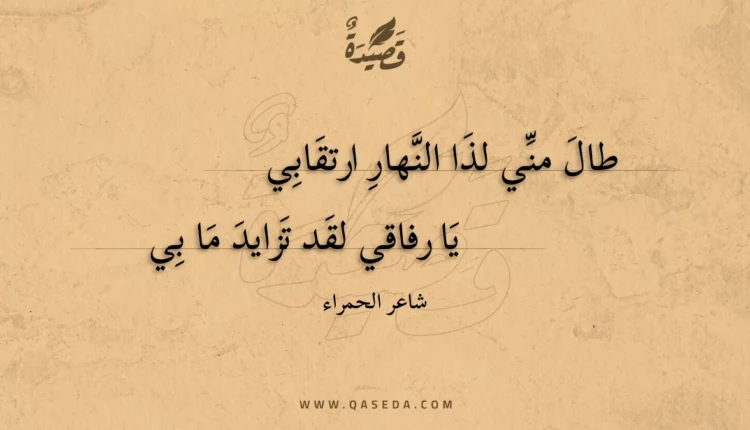 قَصِيْدَةٌ
طالَ منِّي لذَا النَّهارِ ارتقَابِي
يَا رفاقي لقَد تَزايدَ مَا بِي
شاعر الحمراء
WWW.QASEDA.COM